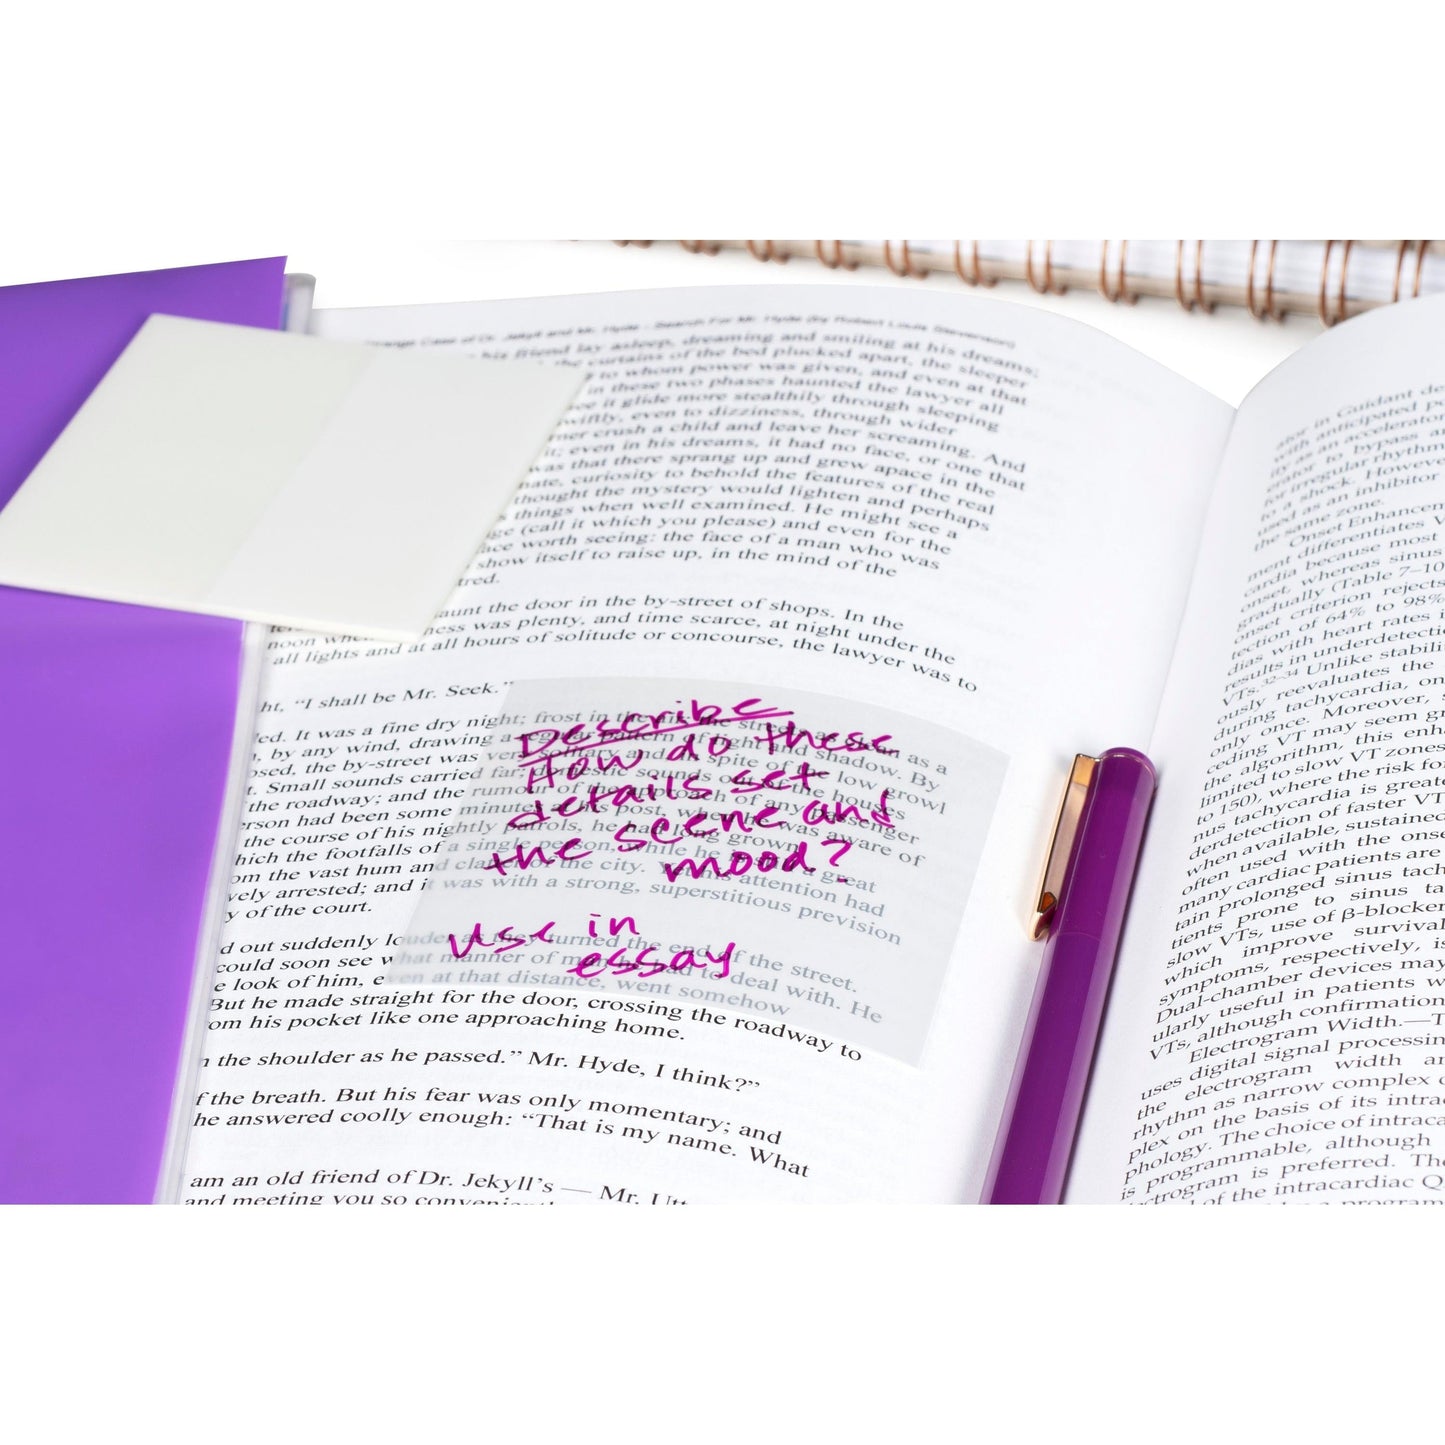 Strange Case of Dr. Jekyll and Mr. Hyde - Search For Mr. Hyde (by Robert Louis Stevenson)
his friend lay asleep, dreaming and smiling at his dreams;
the curtains of the bed plucked apart, the sleeper
to whom power was given, and even at that
in these two phases haunted the lawyer all
it glide more stealthily through sleeping
swiftly, even to dizziness, through wider
crush a child and leave her screaming. And
it; even in his dreams, it had no face, or one that
was that there sprang up and grew apace in the
curiosity to behold the features of the real
thought the mystery would lighten and perhaps
things when well examined. He might see a
(call it which you please) and even for the
face worth seeing: the face of a man who was
show itself to raise up, in the mind of the
haunt the door in the by-street of shops. In the
noon when was plenty, and time scarce, at night under the
all lights and at all hours of solitude or concourse, the lawyer was to
"I shall be Mr. Seek."
It was a fine dry night; frost in the air; the streets as clean as a
by any wind, drawing a regular pattern of light and shadow. By
the by-street was very solitary and spite of the low growl
Small sounds carried far; domestic sounds out of the houses
the roadway; and the rumour of the approach of any passenger
had been some minutes at his post, when he was aware of
the course of his nightly patrols, he had long grown
the footfalls of a single person, while he is still a great
the vast hum and clatter of the city. Yet his attention had
arrested; and it was with a strong, superstitious prevision
of the court.
Describe
How do these
details set
the scene and
mood?
use in
essay
out suddenly louder as they turned the end of the street.
could soon see what manner of man he had to deal with. He
look of him, even at that distance, went somehow
But he made straight for the door, crossing the roadway to
from his pocket like one approaching home.
the shoulder as he passed." Mr. Hyde, I think?"
of the breath. But his fear was only momentary; and
he answered coolly enough: "That is my name. What
am an old friend of Dr. Jekyll's — Mr.
and meeting you so
in Guidant
with anticipated
ity as an accelerator
erator to bypass
for irregular rhythm
to a shock. However
used as an inhibitor
the same zone.
Onset Enhancem
ment differentiates V
cardia because most
onset, whereas sinus
gradually (Table 7–10
onset criterion rejects
tection of 64% to 98%
dias with heart rates
results in underdetecti
VTs.32–34 Unlike stabili
ously reevaluates the
during tachycardia, on
only once. Moreover,
ceding VT may seem
the algorithm, this enha
limited to slow VT zones
to 150), where the risk for
nus tachycardia is greate
derdetection of faster VT
when available, sustained
often used with the onse
many cardiac patients are
tain prolonged sinus tach
tients prone to sinus ta
slow VTs, use of β-blocker
which improve survival
symptoms, respectively, is
Dual-chamber devices may
ularly useful in patients w
VTs, although confirmation
Electrogram Width.—T
uses digital signal processin
the electrogram width an
rhythm as narrow complex
plex on the basis of its intrac
phology. The choice of intraca
is programmable, although
trogram is preferred. The
of the intracardiac